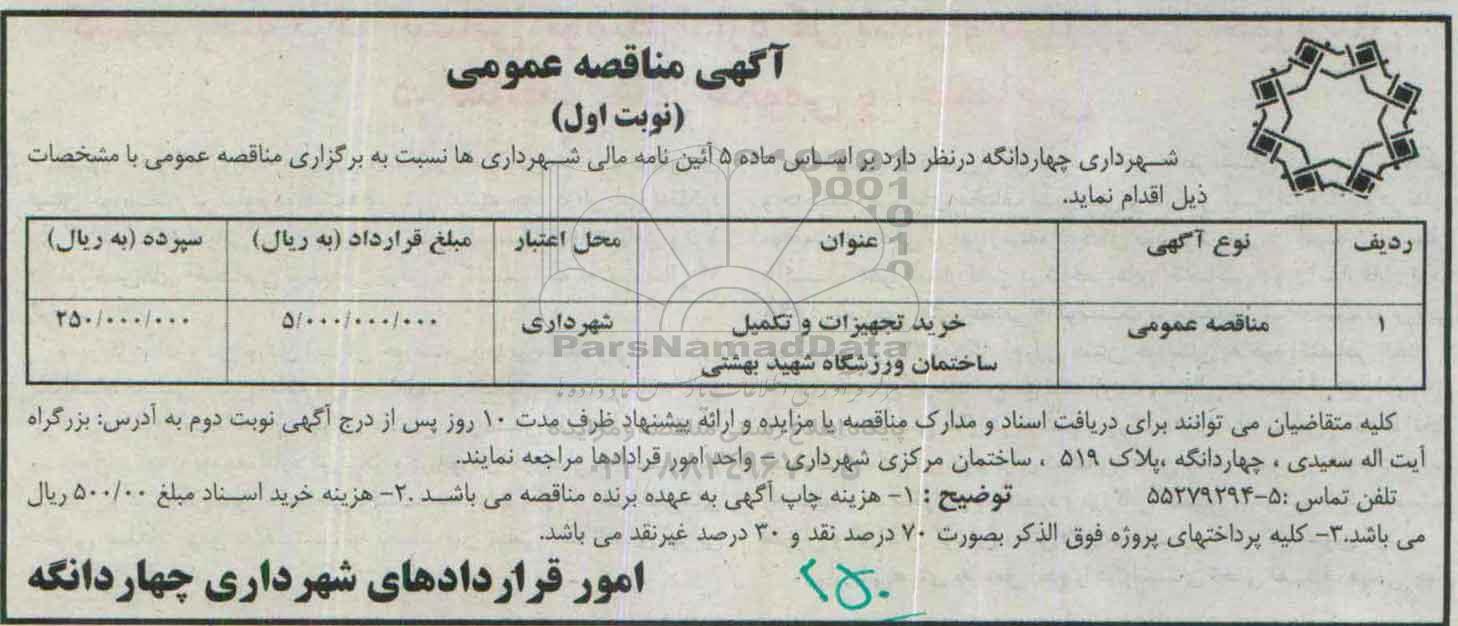 آگهی مناقصه عمومی
(نوبت اول)
شهرداری چهاردانگه درنظر دارد بر اساس ماده ۵ آئین نامه مالی شهرداری ها نسبت به برگزاری مناقصه عمومی با مشخصات
ذیل اقدام نماید.
ردیف نوع آگهی عنوان محل اعتبار مبلغ قرارداد (به ریال) سپرده (به ریال)
۱ مناقصه عمومی خرید تجهیزات و تکمیل شهرداری ۵/۰۰۰/۰۰۰/۰۰۰ ۲۵۰/۰۰۰/۰۰۰
ساختمان ورزشگاه شهید بهشتی
ParsNamadData
کلیه متقاضیان می توانند برای دریافت اسناد و مدارک مناقصه یا مزایده و ارائه پیشنهاد ظرف مدت ۱۰ روز پس از درج آگهی نوبت دوم به آدرس: بزرگراه
آیت اله سعیدی ، چهاردانگه ،پلاک ۵۱۹ ، ساختمان مرکزی شهرداری – واحد امور قرادادها مراجعه نمایند.
تلفن تماس :۵-۵۵۲۷۹۲۹۴ توضیح : ۱- هزینه چاپ آگهی به عهده برنده مناقصه می باشد .۲- هزینه خرید اسناد مبلغ ۵۰۰/۰۰ ریال
می باشد.۳- کلیه پرداختهای پروژه فوق الذکر بصورت ۷۰ درصد نقد و ۳۰ درصد غیرنقد می باشد.
امور قراردادهای شهرداری چهاردانگه
۲۵۰